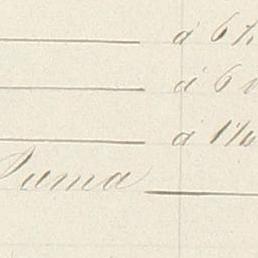 á 6
á 6
á 1/6
Suma